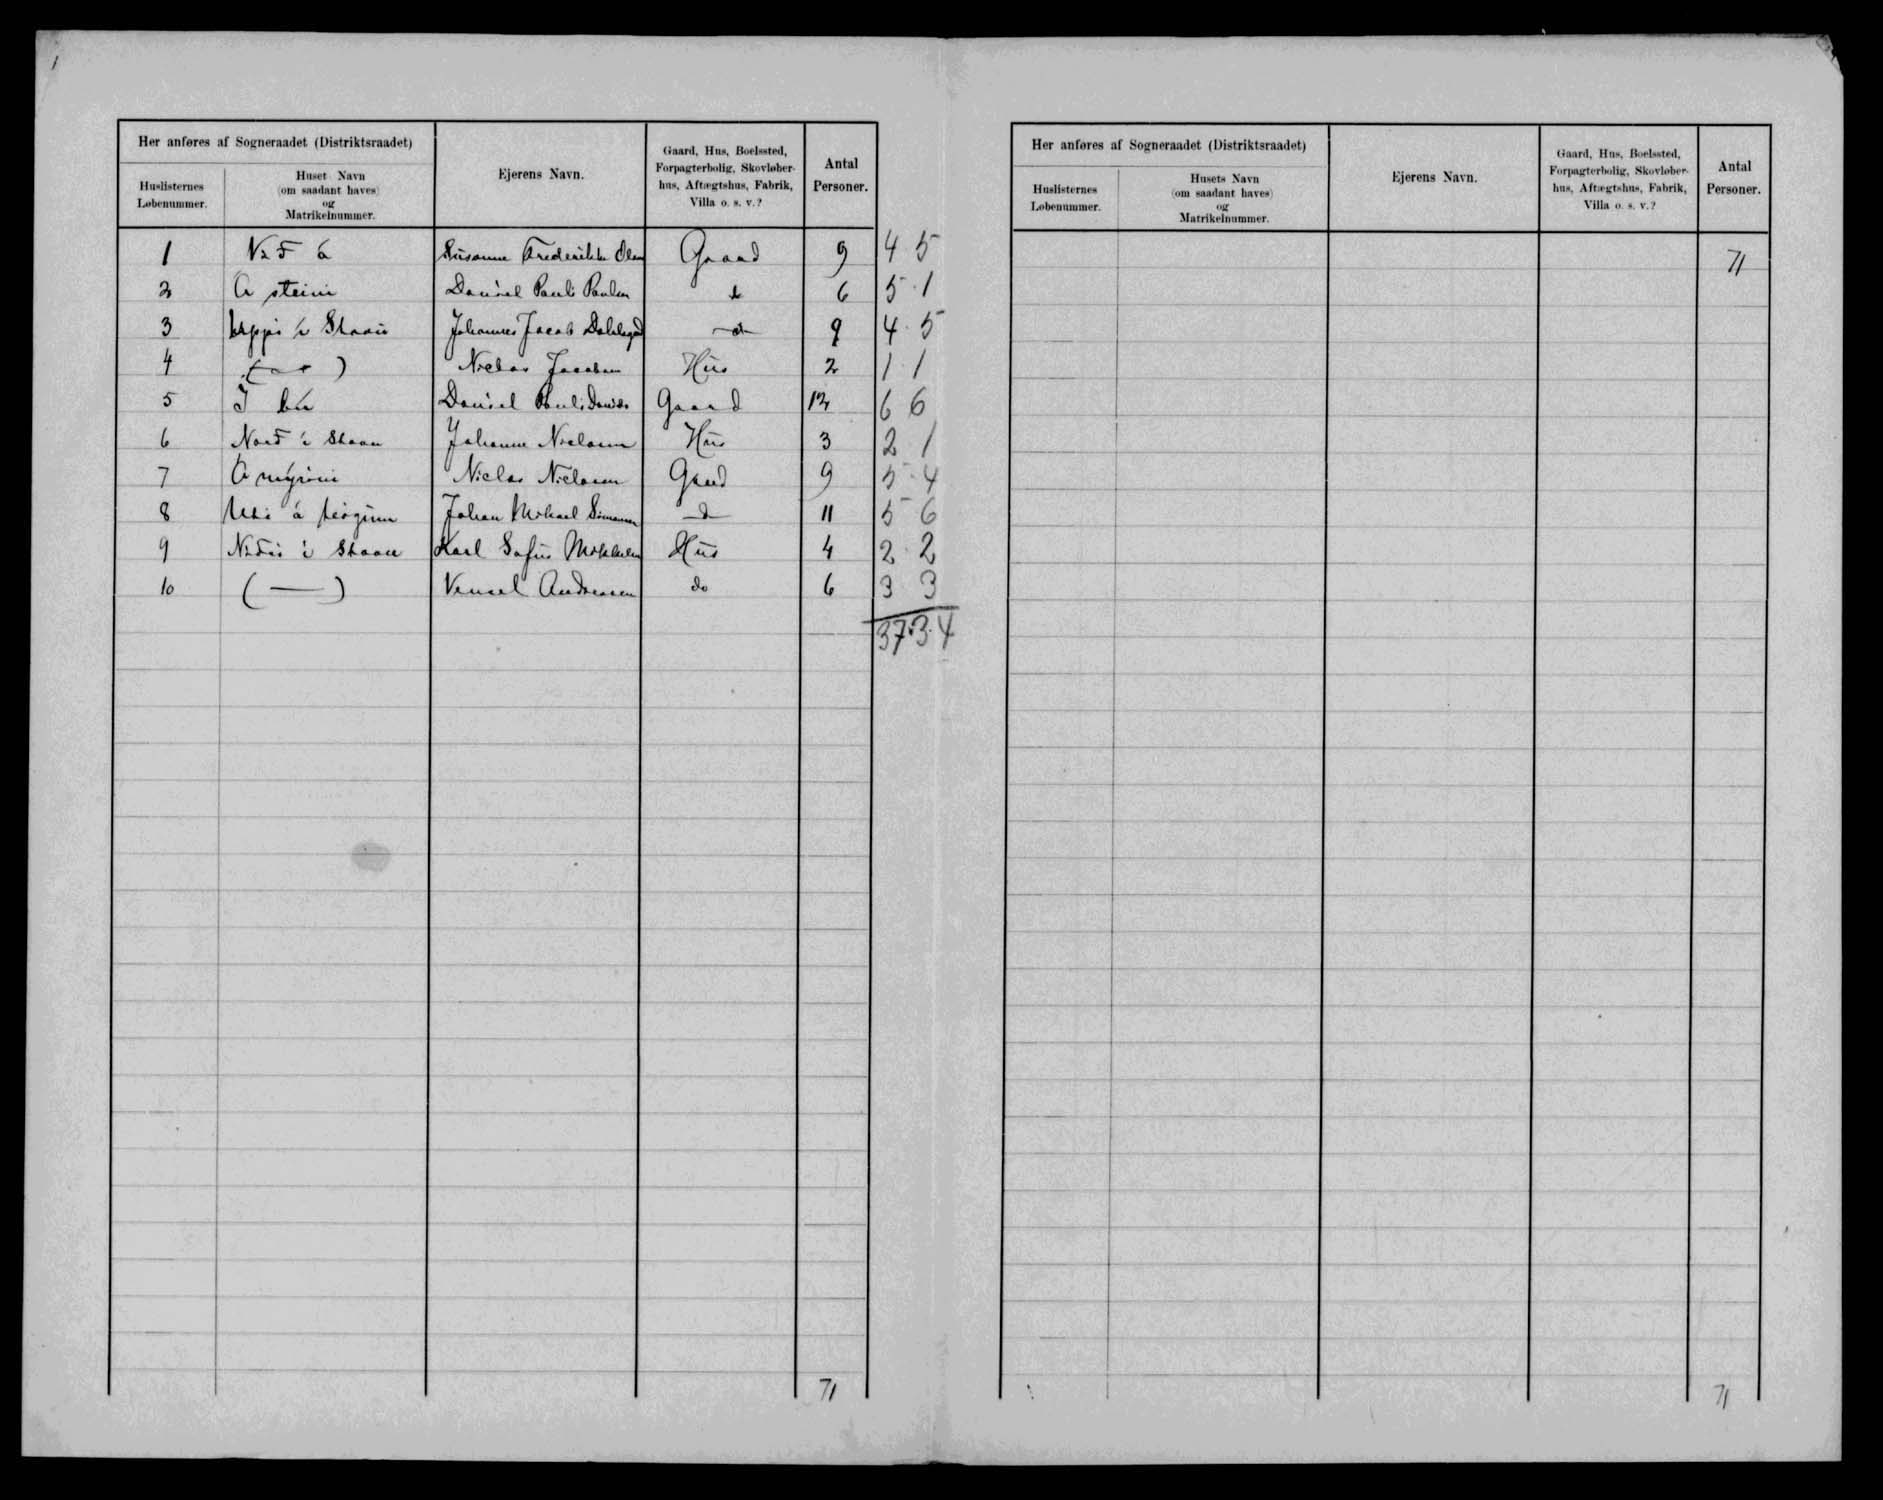 Her anføres af Sogneraadet (Distriktsraadet)
Huslisternes Løbenummer.
Huset Navn (om saadant haves) og Matrikelnummer.
Ejerens Navn.
Gaard, Hus, Boelssted, Forpagterbolig, Skovløberhus, Aftægtshus, Fabrik, Villa o. s. v.?
Antal Personer.
1 Susanne Frederikke Olsen Gaard 9 4 5
2 Á steini Daniel Pauli Poulsen do 6 5 1
3 uppi í Skaan Johannes Jacob Dahlsgaard do 9 4 5
4 ( ) Niclas Jacobsen Hus 2 1 1
5 Í bú Daniel Pauli Daniels Gaard 12 6 6
6 Nord í Skaan Johanne Niclasen Hus 3 2 1
7 Á mýrini Niclas Niclasen Gaard 9 5 4
8 Johan Mikael Simonsen do 11 5 6
9 í Skaan Karl Sofus Mikkelsen Hus 4 2 2
10 ( — ) Vensel Andreasen do 6 3 3
37 34
71
Her anføres af Sogneraadet (Distriktsraadet)
Huslisternes Løbenummer.
Husets Navn (om saadant haves) og Matrikelnummer.
Ejerens Navn.
Gaard, Hus, Boelssted, Forpagterbolig, Skovløberhus, Aftægtshus, Fabrik, Villa o. s. v.?
Antal Personer.
71
71